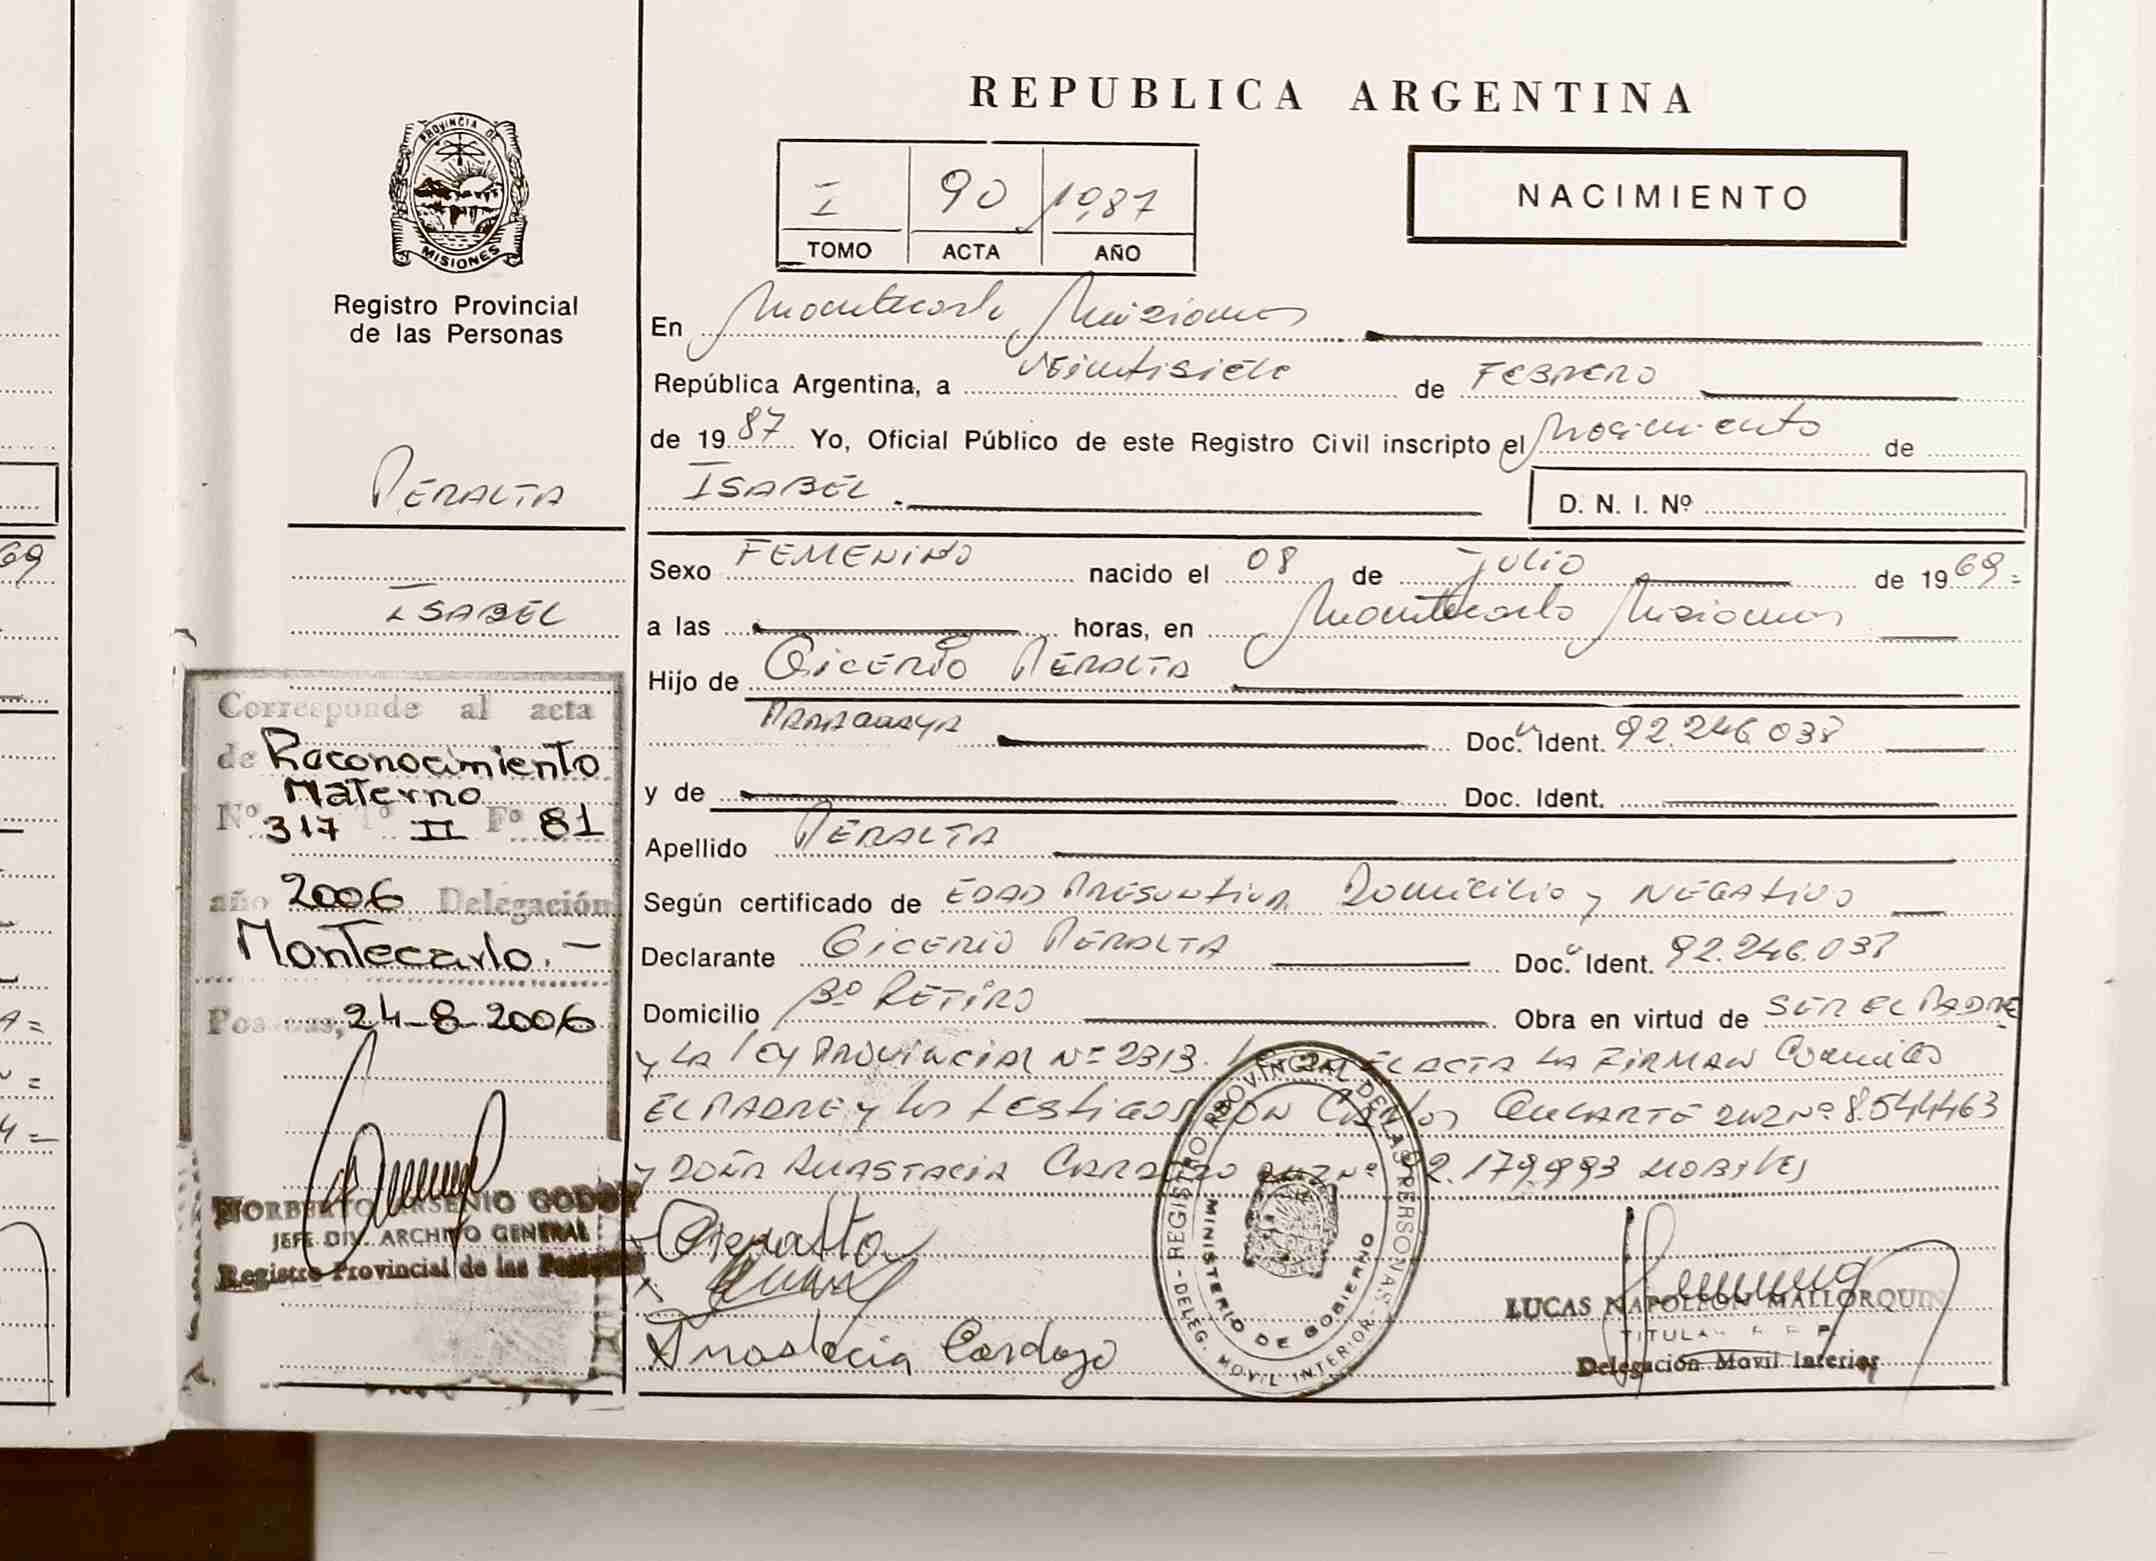 REPUBLICA ARGENTINA
PROVINCIA DE
MISIONES
Registro Provincial
de las Personas
I 90 1987
TOMO ACTA AÑO
NACIMIENTO
En Montecarlo Misiones
República Argentina, a veintisiete de FEBRERO
de 1987 Yo, Oficial Público de este Registro Civil inscripto el Nacimiento de
ISABEL.
D. N. I. Nº
Sexo FEMENINO nacido el 08 de julio de 1969=
a las horas, en Montecarlo Misiones
Hijo de PERALTA
PARAGUAYA Doc. Ident. 92.246.038
y de Doc. Ident.
Apellido PERALTA
Según certificado de EDAD PRESUNTIVA Domicilio y NEGATIVO
Declarante PERALTA Doc. Ident. 92.246.038
Domicilio Bº RETIRO Obra en virtud de SER EL PADRE
y LA LEY PROVINCIAL Nº 2313. EL ACTA LA FIRMAN
EL PADRE y los testigos DON Carlos Nº 8.544463
y DOÑA ANASTACIA CARDOZO Nº 2.179.993 HABILES
Peralta
Anastacia Cardozo
PERALTA
ISABEL
Corresponde al acta
de Reconocimiento
Materno
Nº 317 Tº II Fº 81
año 2006 Delegación
Montecarlo.-
Posadas, 24-8-2006
NORBERTO ARSENIO GODOY
JEFE DIV. ARCHIVO GENERAL
Registro Provincial de las Personas
REGISTRO PROVINCIAL DE LAS PERSONAS
- DELEG. MOVIL INTERIOR -
MINISTERIO DE GOBIERNO
LUCAS NAPOLEON MALLORQUIN
TITULAR
Delegación Movil Interior
69